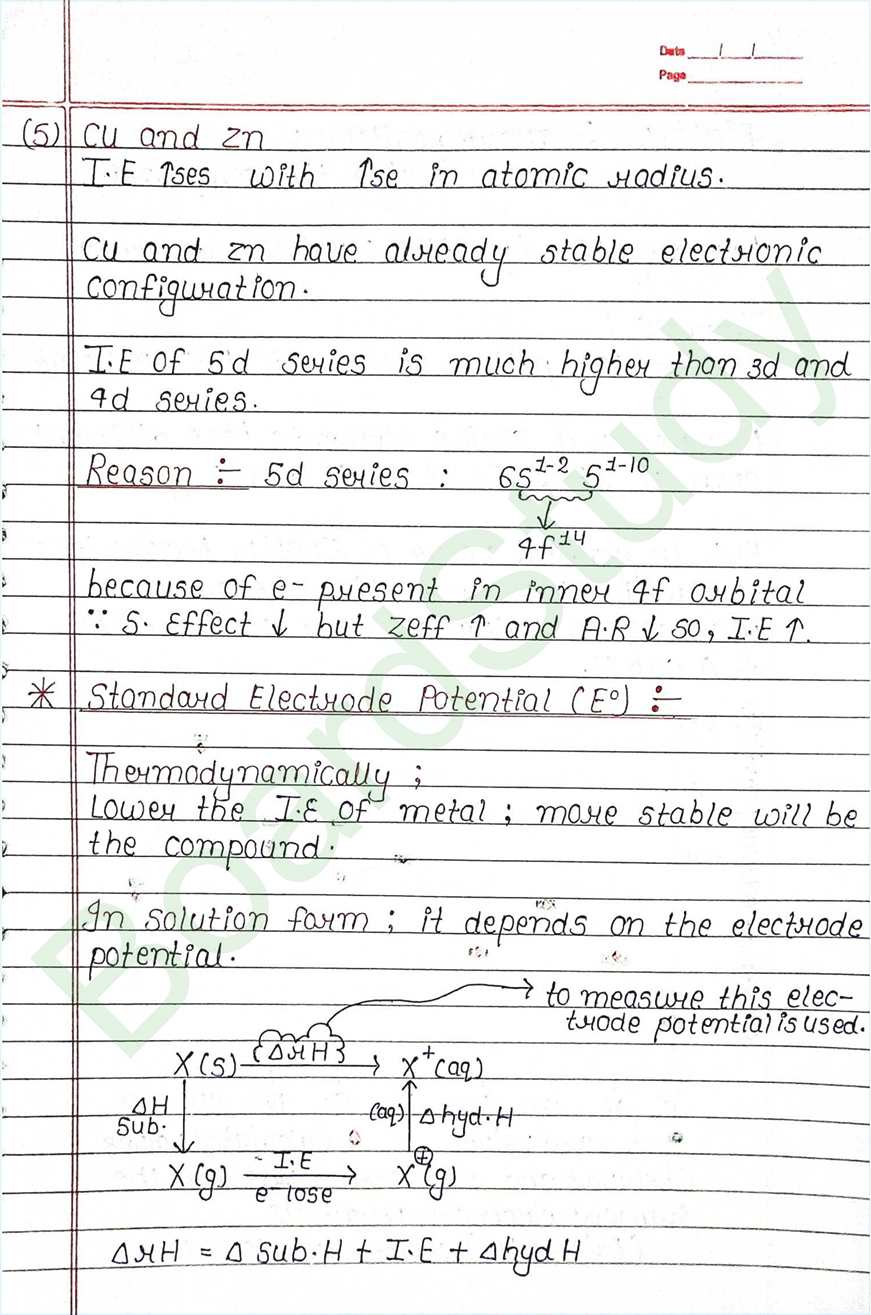 Date / /
Page
(5) Cu and Zn
I.E ↑ses with ↑se in atomic radius.
Cu and Zn have already stable electronic
configuration.
I.E of 5d series is much higher than 3d and
4d series.
Reason :- 5d series : 6s¹⁻² 5¹⁻¹⁰
4f¹⁴
because of e- present in inner 4f orbital
∵ S. Effect ↓ but Zeff ↑ and A.R ↓ so, I.E ↑.
* Standard Electrode Potential (E°) :-
Thermodynamically ;
Lower the I.E of metal ; more stable will be
the compound.
In solution form ; it depends on the electrode
potential.
to measure this elec-
trode potential is used.
X(s) {ΔrH} → X⁺(aq)
ΔH
Sub.
(aq) Δhyd.H
X(g) - I.E → X⊕(g)
e⁻ lose
ΔrH = Δ sub.H + I.E + Δhyd H
BoardStudy